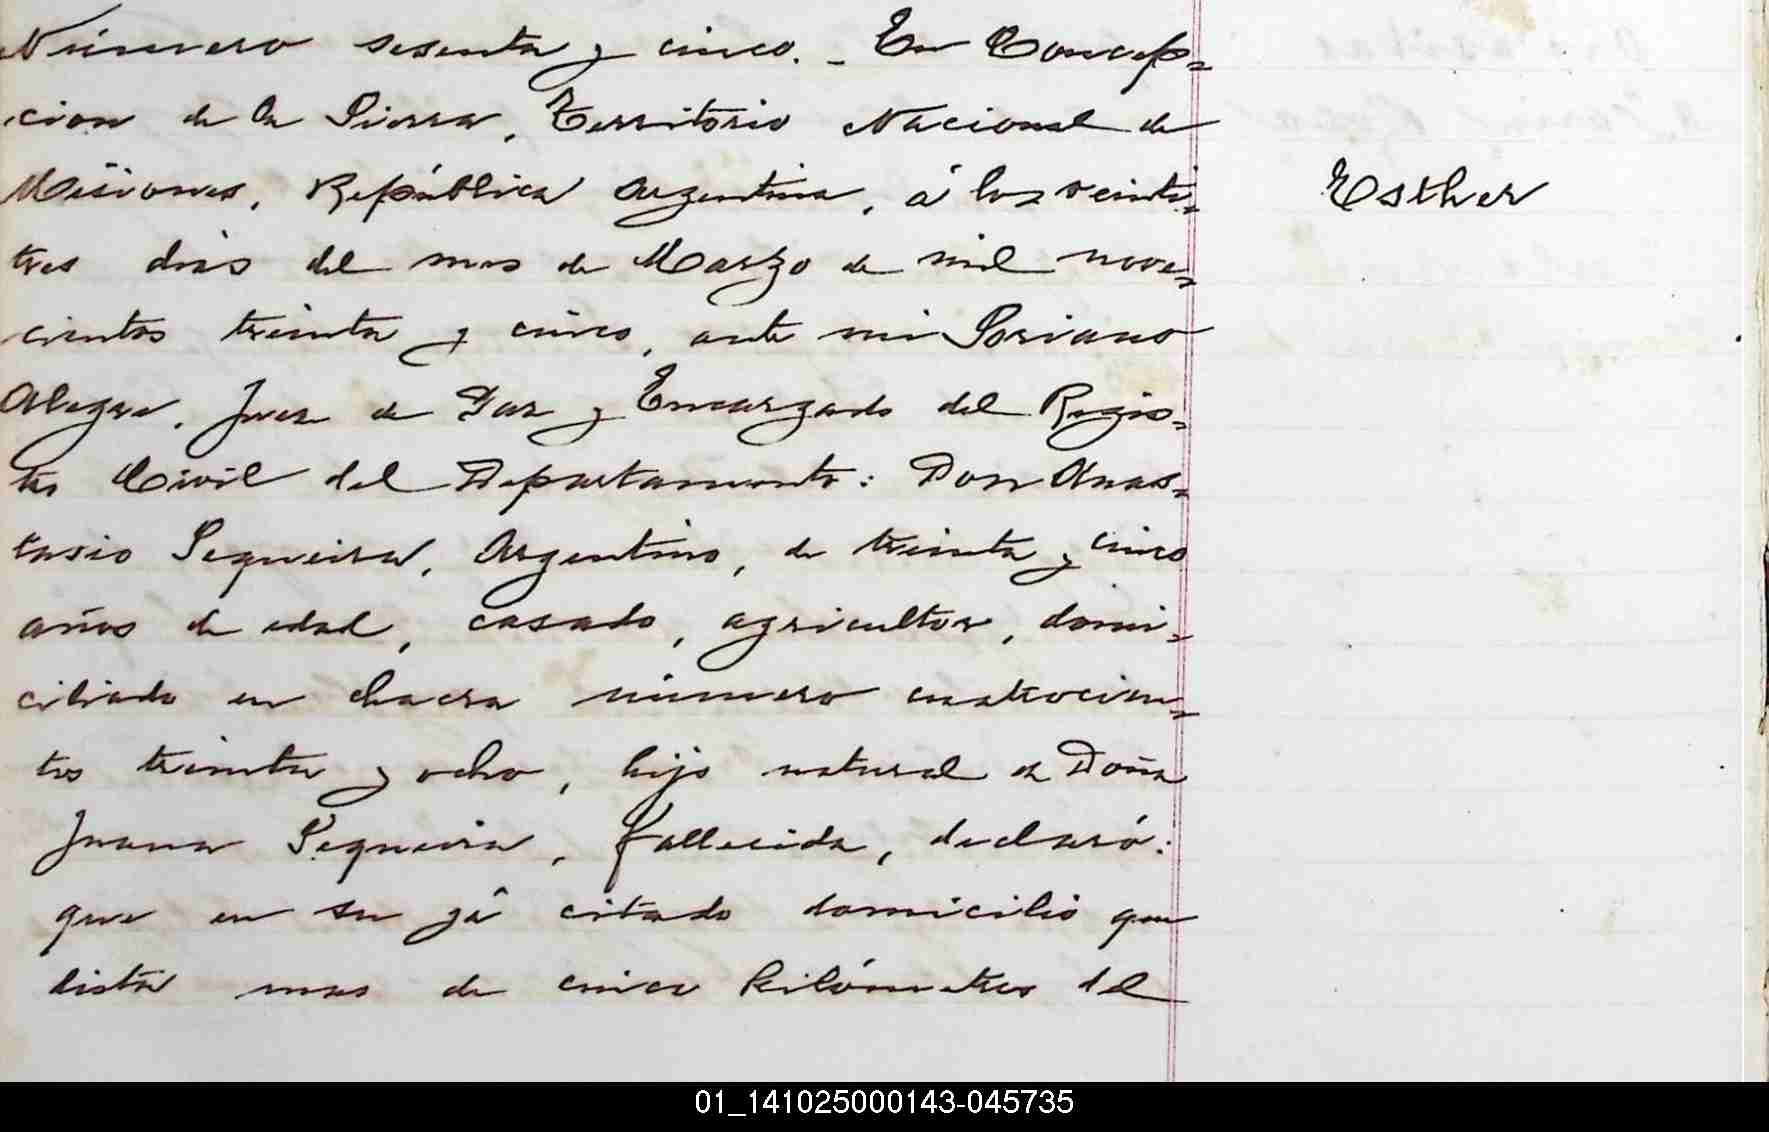 Número sesenta y cinco. - En Concep=
cion de la Sierra, Territorio Nacional de
Misiones, República Argentina, á los veinti=
tres dias del mes de Marzo de mil nove=
cientos treinta y cinco, ante mi Soriano
Alegre, Juez de Paz y Encargado del Regis=
tro Civil del Departamento: Don Anas=
tasio Sequeira, Argentino, de treinta y cinco
años de edad, casado, agricultor, domi=
ciliado en chacra número cuatrocien=
tos treinta y ocho, hijo natural de Doña
Juana Sequeira, fallecida, declaró:
que en su yá citado domicilio que
dista mas de cinco kilómetros del
Esther
01_141025000143-045735